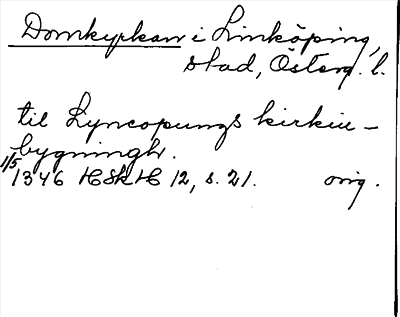 Domkyrkan i Linköping,
stad, Österg. l.
til Lyncopungs kirkiu-
bygningh.
1/5
1346 HSkH 12, s. 21. orig.